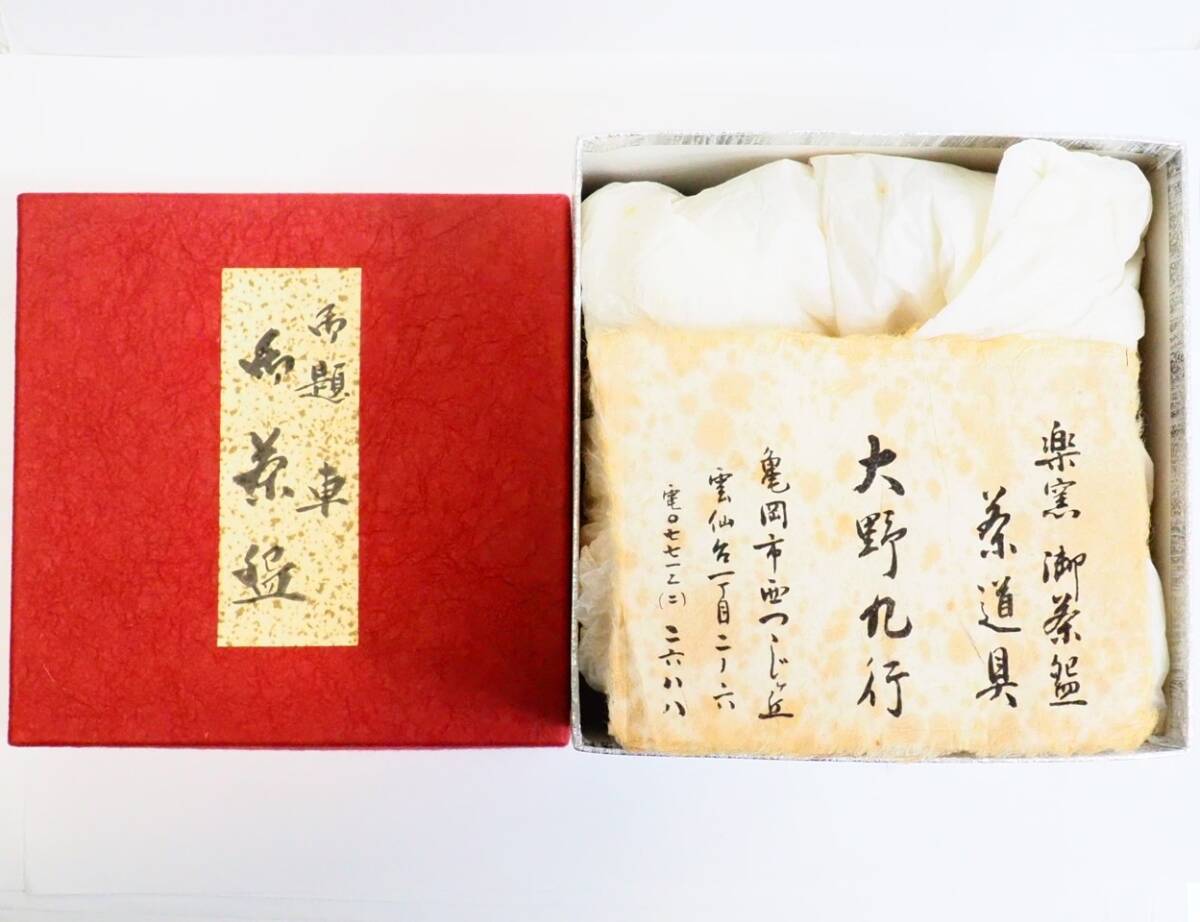 御題 車
御茶盌
楽窯 御茶盌
茶道具
大野九行
亀岡市西つゝじヶ丘
雲仙台一丁目二ノ六
電〇七七一二(二)二六八八